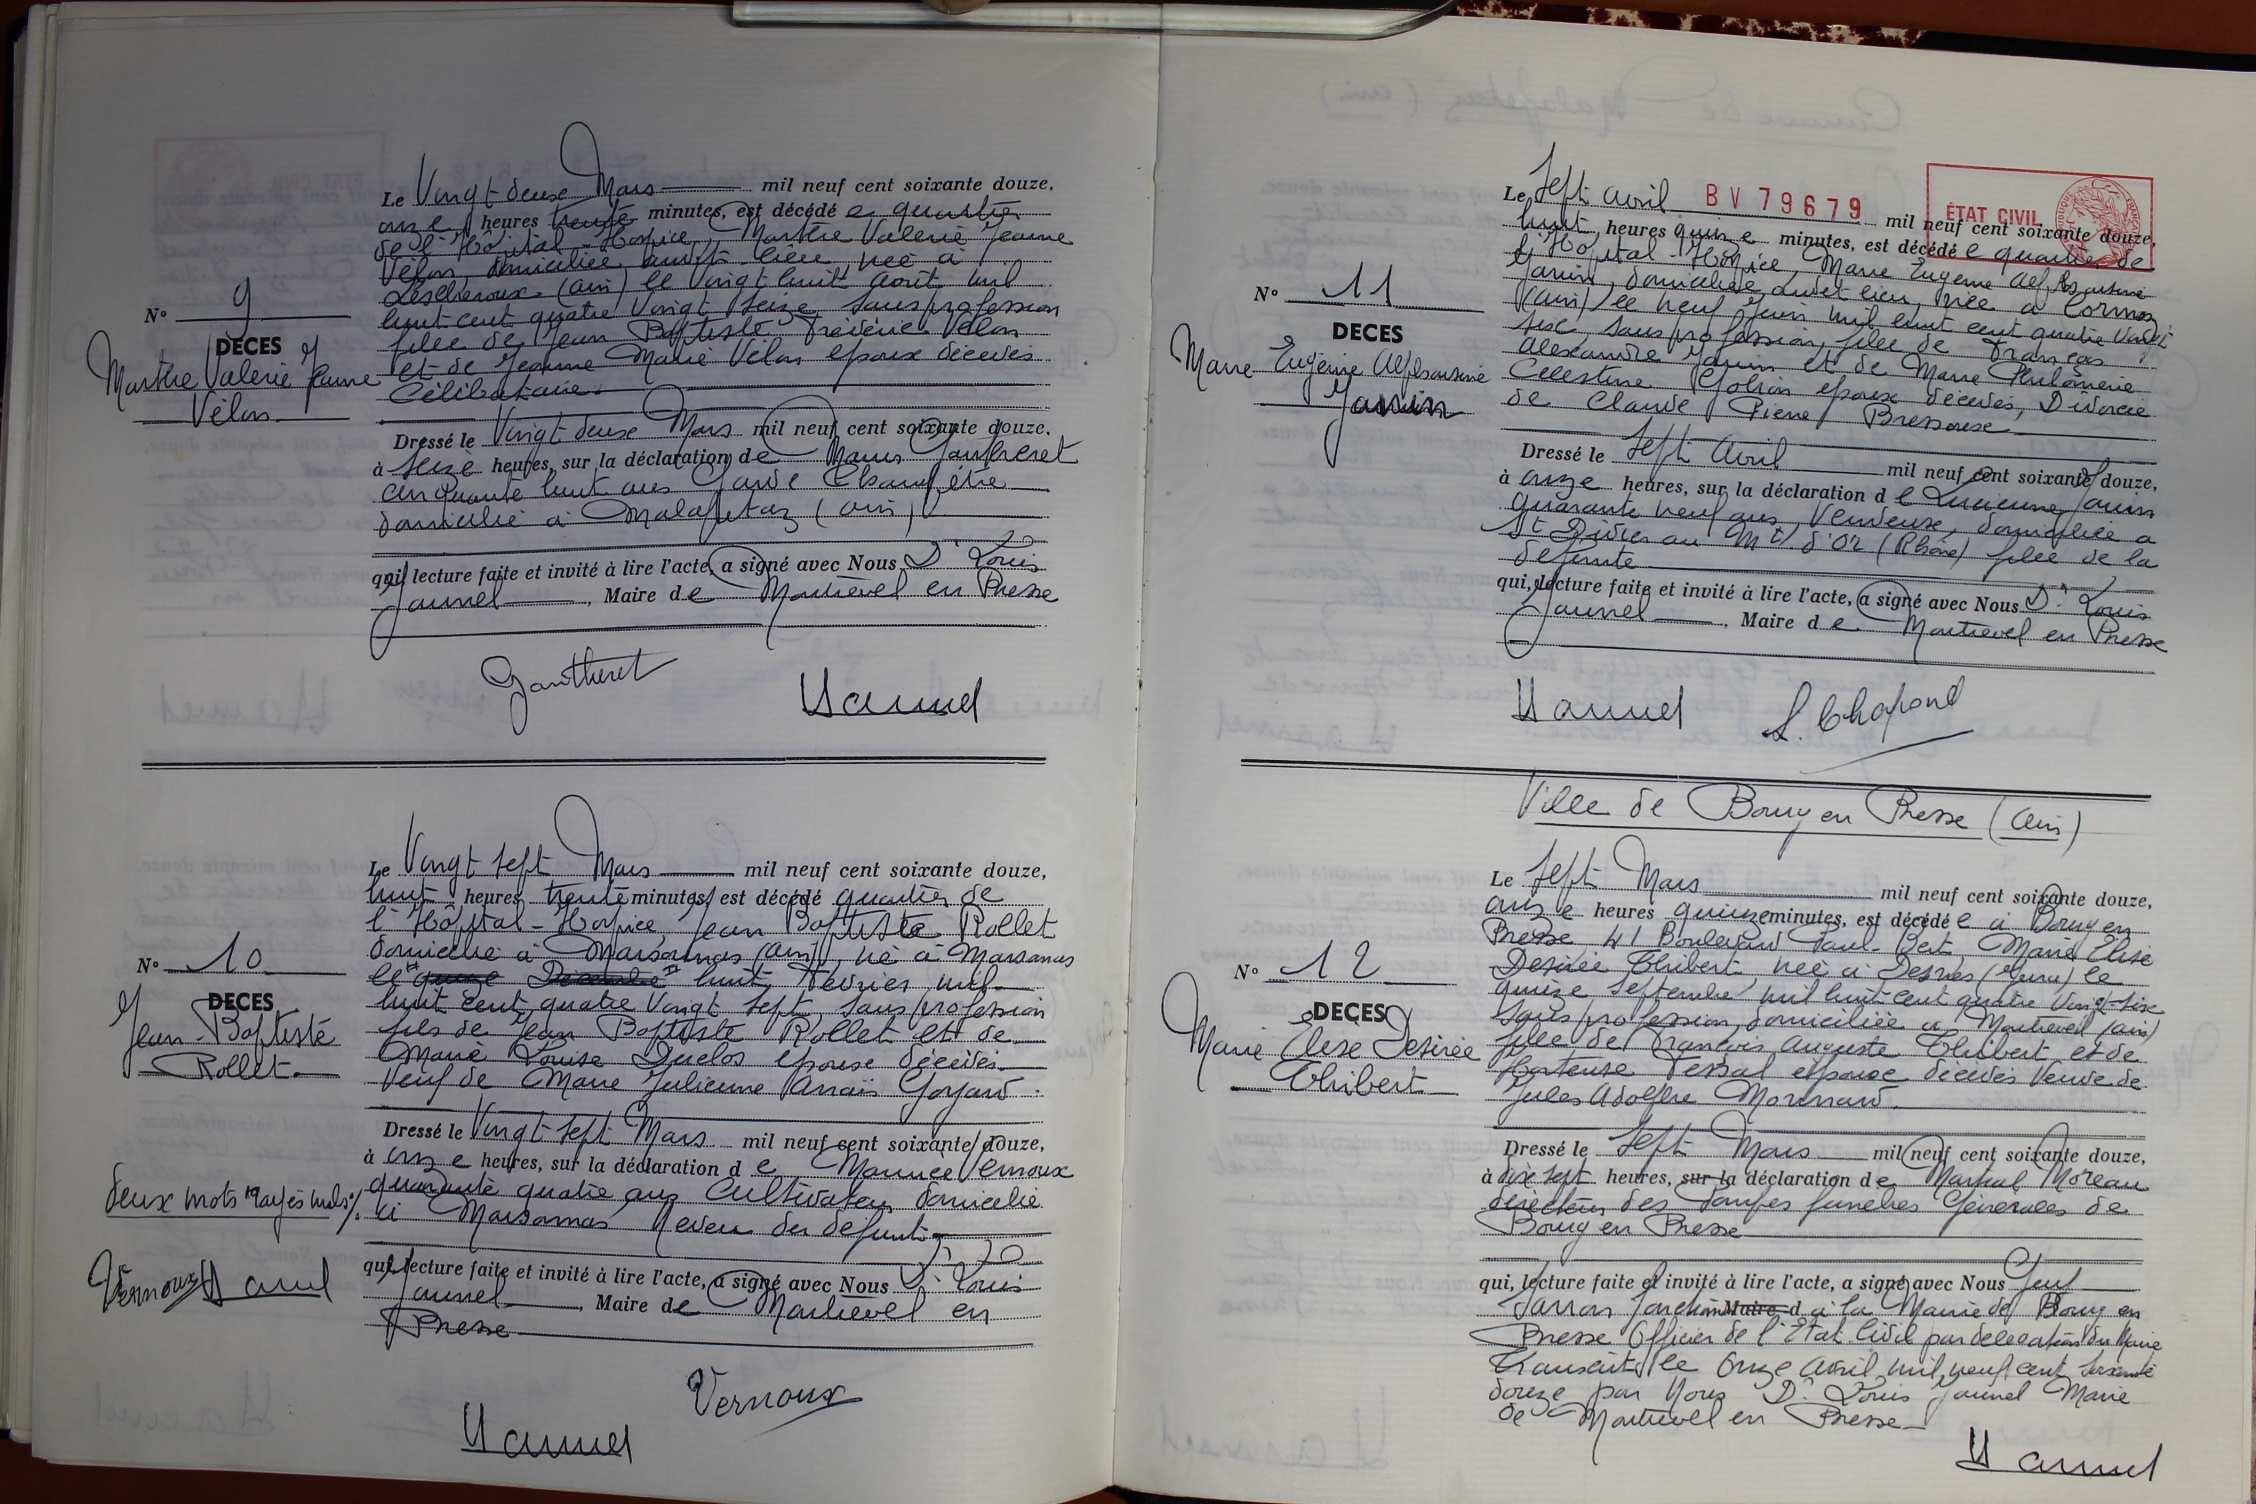 N° 9
DÉCES
Marthe Valérie Jeanne
Vélon
Le Vingt deux Mars mil neuf cent soixante douze,
onze heures trente minutes, est décédé e quartier
de l'Hôpital-Hospice, Marthe Valérie Jeanne
Vélon, domiciliée audit lieu, née à
Lescheroux (ain) le Vingt huit août mil
huit cent quatre Vingt seize sans profession
fille de Jean Baptiste Frédéric Vélon
et de Jeanne Marie Vélon époux décédés
Célibataire.
Dressé le Vingt deux Mars mil neuf cent soixante douze.
à seize heures, sur la déclaration de Marius Gautheret
cinquante huit ans Garde Champêtre
domicilié à Malafretaz (ain)
qui, lecture faite et invité à lire l'acte, a signé avec Nous Dr Louis
Jaunel, Maire de Montrevel en Bresse
Gautheret Jaunel
N° 10
DECES
Jean-Baptiste
Rollet
deux mots rayés nuls
Vernoux Jaunel
Le Vingt sept Mars mil neuf cent soixante douze,
huit heures trente minutes, est décédé quartier de
l'Hôpital-Hospice, Jean Baptiste Rollet
domicilié à Marsonnas (ain), né à Marsonnas
le huit Février mil
huit cent quatre Vingt sept, sans profession
fils de Jean Baptiste Rollet et de
Marie Louise Duclos époux décédés
Veuf de Marie Julienne Anaïs Goyard
Dressé le Vingt sept Mars mil neuf cent soixante douze,
à onze heures, sur la déclaration de Maurice Vernoux
quarante quatre ans Cultivateur domicilié
à Marsonnas Neveu du défunt
qui, lecture faite et invité à lire l'acte, a signé avec Nous Dr Louis
Jaunel, Maire de Montrevel en
Bresse
Vernoux
Jaunel
N° 11
DECES
Marie Eugénie Alphonsine
Janin
Le Sept avril BV 79679 mil neuf cent soixante douze,
ÉTAT CIVIL
huit heures quinze minutes, est décédé e quartier de
l'Hôpital-Hospice, Marie Eugénie Alphonsine
Janin, domiciliée audit lieu, née à Cormoz
(ain) le neuf Juin mil huit cent quatre Vingt
six, sans profession, fille de François
Alexandre Janin et de Marie Philomène
Célestine époux décédés, Divorcée
de Claude Pierre Bressoux
Dressé le Sept avril mil neuf cent soixante douze,
à onze heures, sur la déclaration de Lucienne Janin
quarante neuf ans, Vendeuse, domiciliée à
St Didier au Mt d'Or (Rhône) fille de la
défunte
qui, lecture faite et invité à lire l'acte, a signé avec Nous Dr Louis
Jaunel, Maire de Montrevel en Bresse
Jaunel L. Chapond
Ville de Bourg en Bresse (ain)
N° 12
DECES
Marie Elise Désirée
Thibert
Le Sept Mars mil neuf cent soixante douze,
onze heures quinze minutes, est décédé e à Bourg en
Bresse, 41 Boulevard Paul-Bert, Marie Elise
Désirée Thibert née à Desnes (Jura) le
quinze Septembre mil huit cent quatre Vingt-six
sans profession, domiciliée à Montrevel (ain)
fille de François Auguste Thibert et de
Hortense époux décédés Veuve de
Jules Adolphe
Dressé le Sept Mars mil neuf cent soixante douze,
à dix sept heures, sur la déclaration de Martial Moreau
directeur des Pompes funèbres Générales de
Bourg en Bresse
qui, lecture faite et invité à lire l'acte, a signé avec Nous
Maire d à la Mairie de Bourg en
Bresse Officier de l'Etat Civil par délégation du Maire
Transcrit le Onze avril mil neuf cent soixante
douze par Nous Dr Louis Jaunel Maire
de Montrevel en Bresse
Jaunel